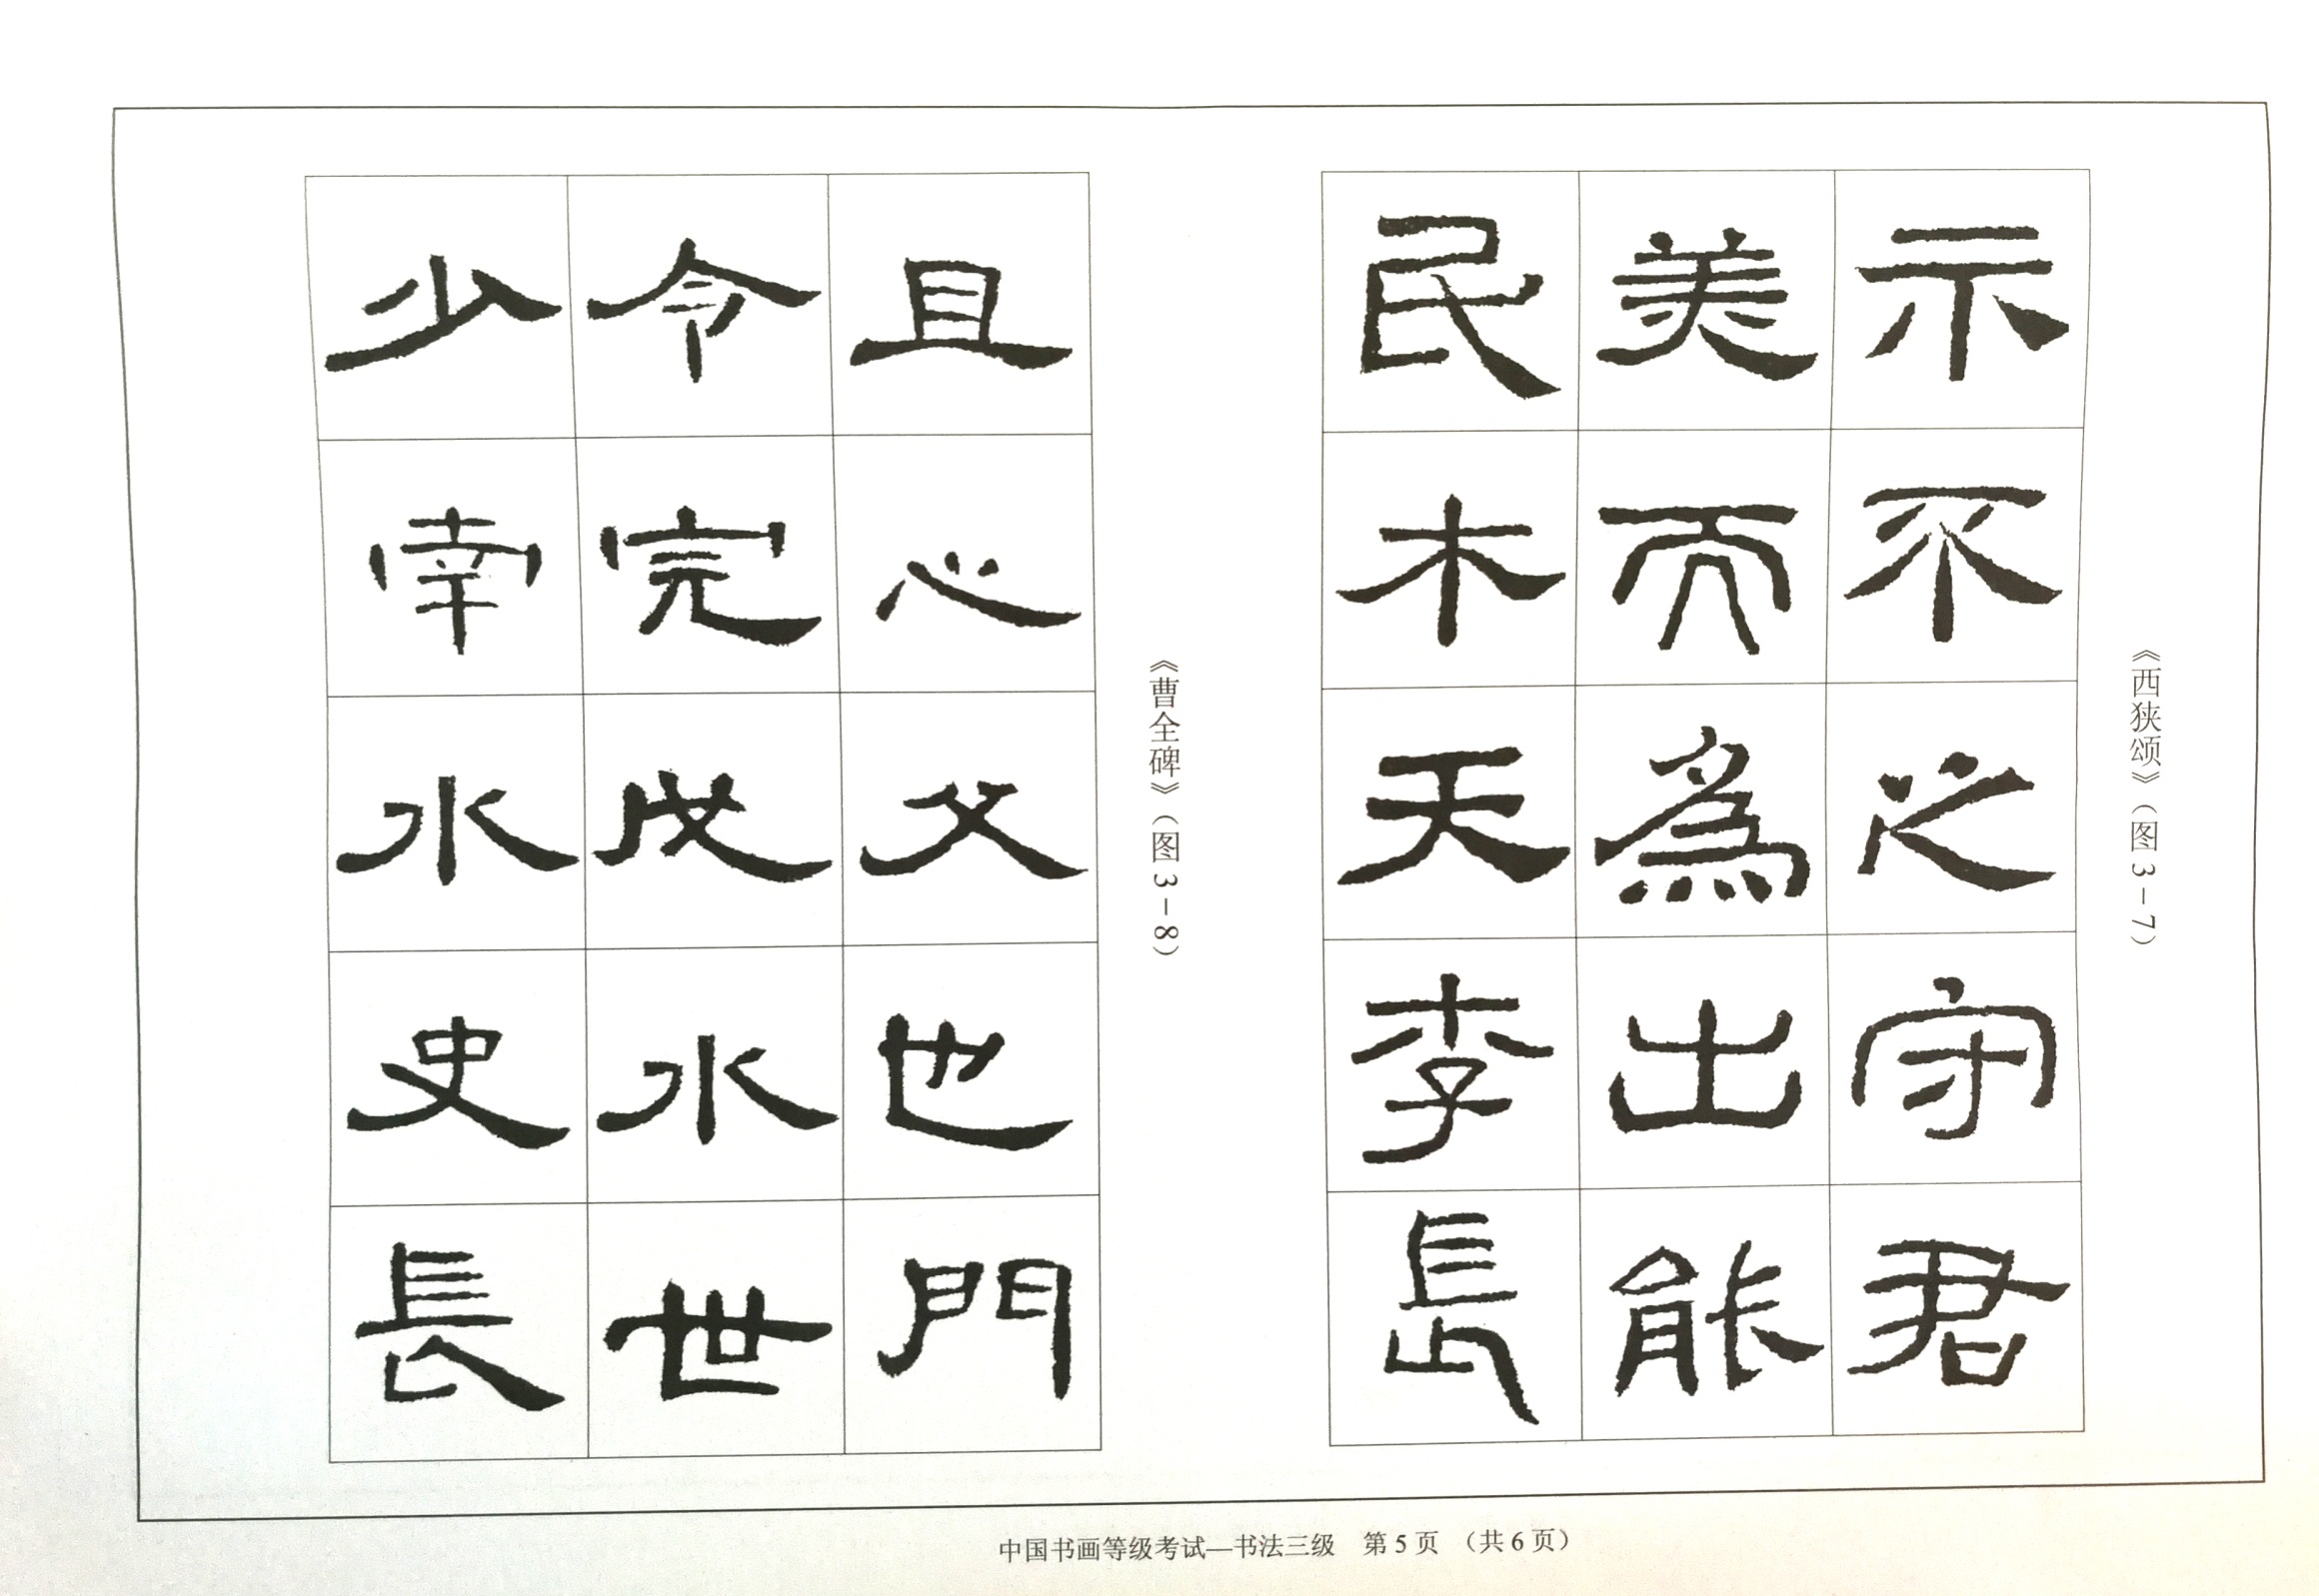 《西狭颂》（图3-7）
示不之守君
美而為出能
民木天李長
《曹全碑》（图3-8）
且心父也門
令完戊水世
少幸水史長
中国书画等级考试—书法三级 第5页 （共6页）